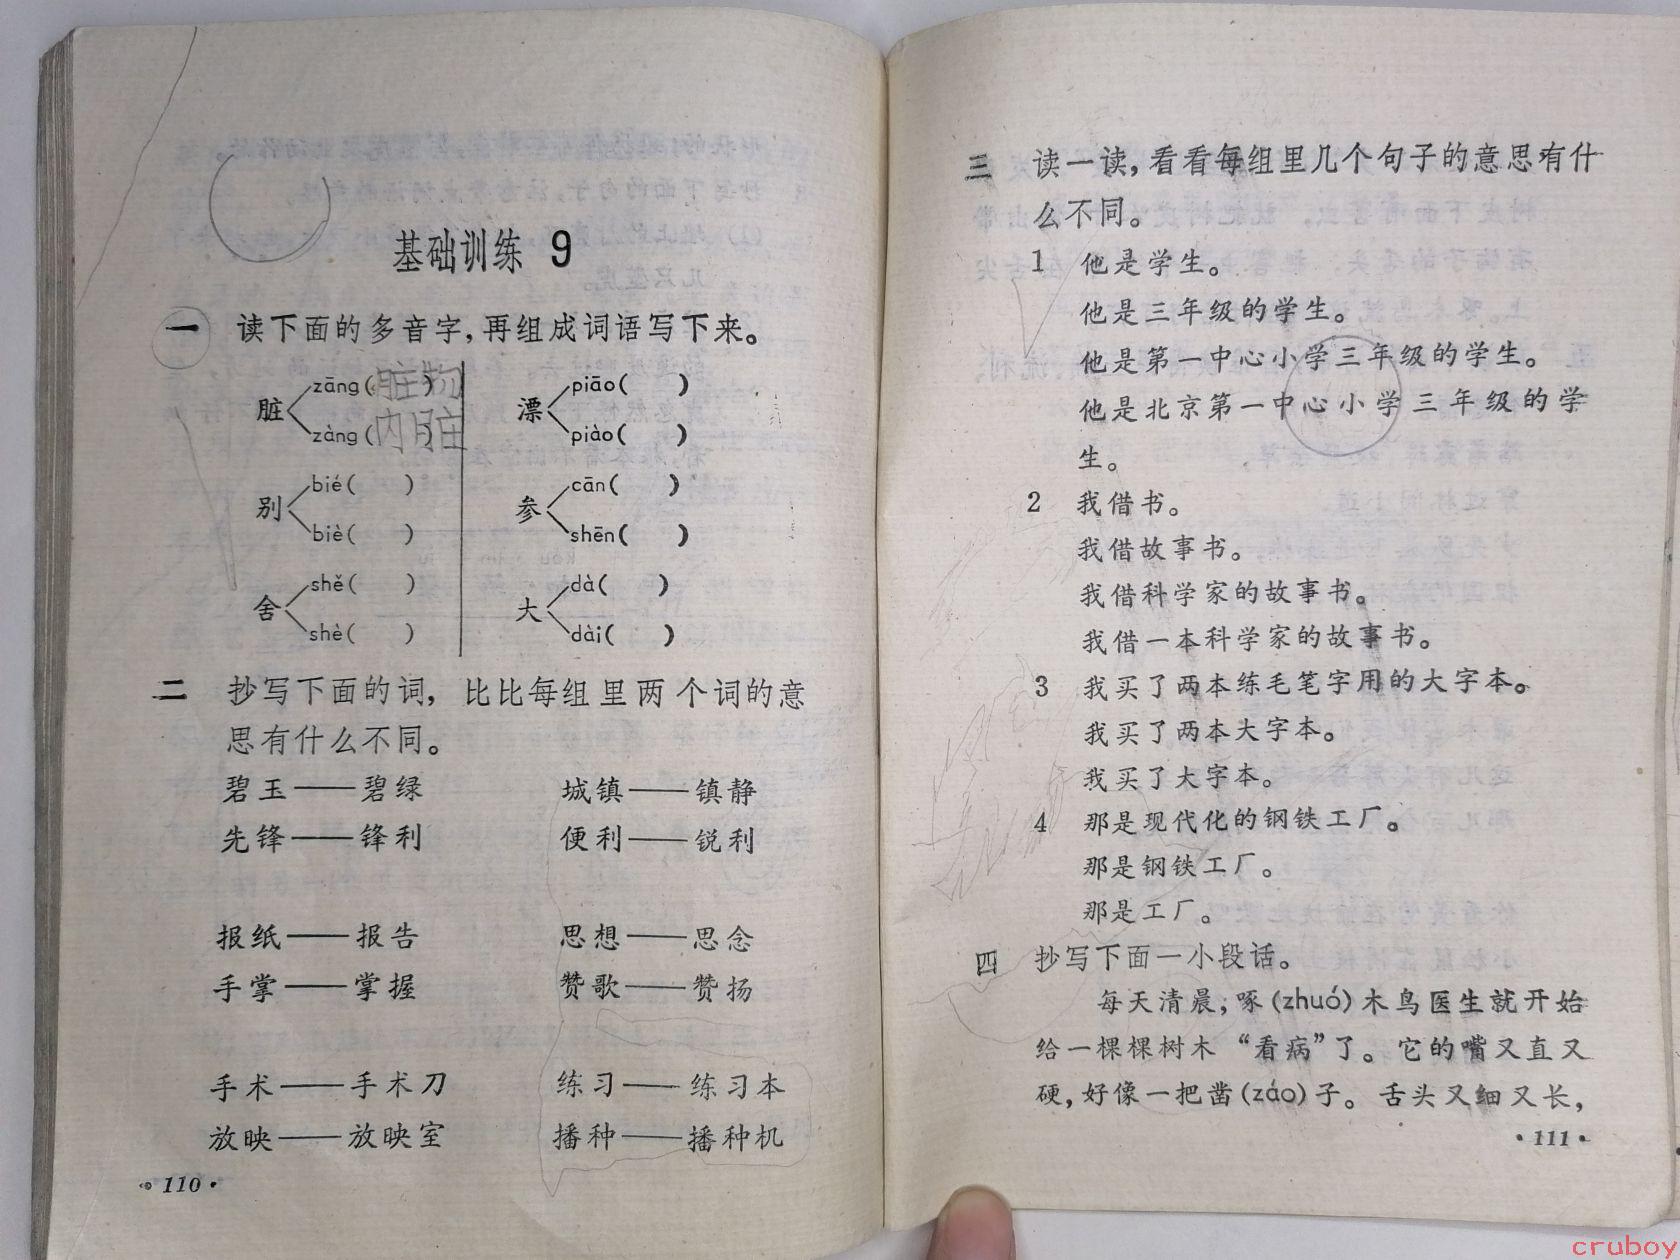 基础训练 9
一 读下面的多音字,再组成词语写下来。
脏 zāng(脏物) 漂 piāo( )
zàng(内脏) piào( )
别 bié( ) 参 cān( )
biè( ) shēn( )
舍 shě( ) 大 dà( )
shè( ) dài( )
二 抄写下面的词,比比每组里两个词的意
思有什么不同。
碧玉——碧绿 城镇——镇静
先锋——锋利 便利——锐利
报纸——报告 思想——思念
手掌——掌握 赞歌——赞扬
手术——手术刀 练习——练习本
放映——放映室 播种——播种机
·110·
三 读一读,看看每组里几个句子的意思有什
么不同。
1 他是学生。
他是三年级的学生。
他是第一中心小学三年级的学生。
他是北京第一中心小学三年级的学
生。
2 我借书。
我借故事书。
我借科学家的故事书。
我借一本科学家的故事书。
3 我买了两本练毛笔字用的大字本。
我买了两本大字本。
我买了大字本。
4 那是现代化的钢铁工厂。
那是钢铁工厂。
那是工厂。
四 抄写下面一小段话。
每天清晨,啄(zhuó)木鸟医生就开始
给一棵棵树木“看病”了。它的嘴又直又
硬,好像一把凿(záo)子。舌头又细又长,
·111·
cruboy